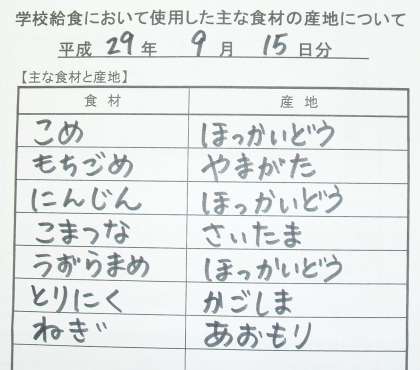 学校給食において使用した主な食材の産地について
平成 29 年 9 月 15 日分
【主な食材と産地】
食 材 産 地
こめ ほっかいどう
もちごめ やまがた
にんじん ほっかいどう
こまつな さいたま
うずらまめ ほっかいどう
とりにく かごしま
ねぎ あおもり